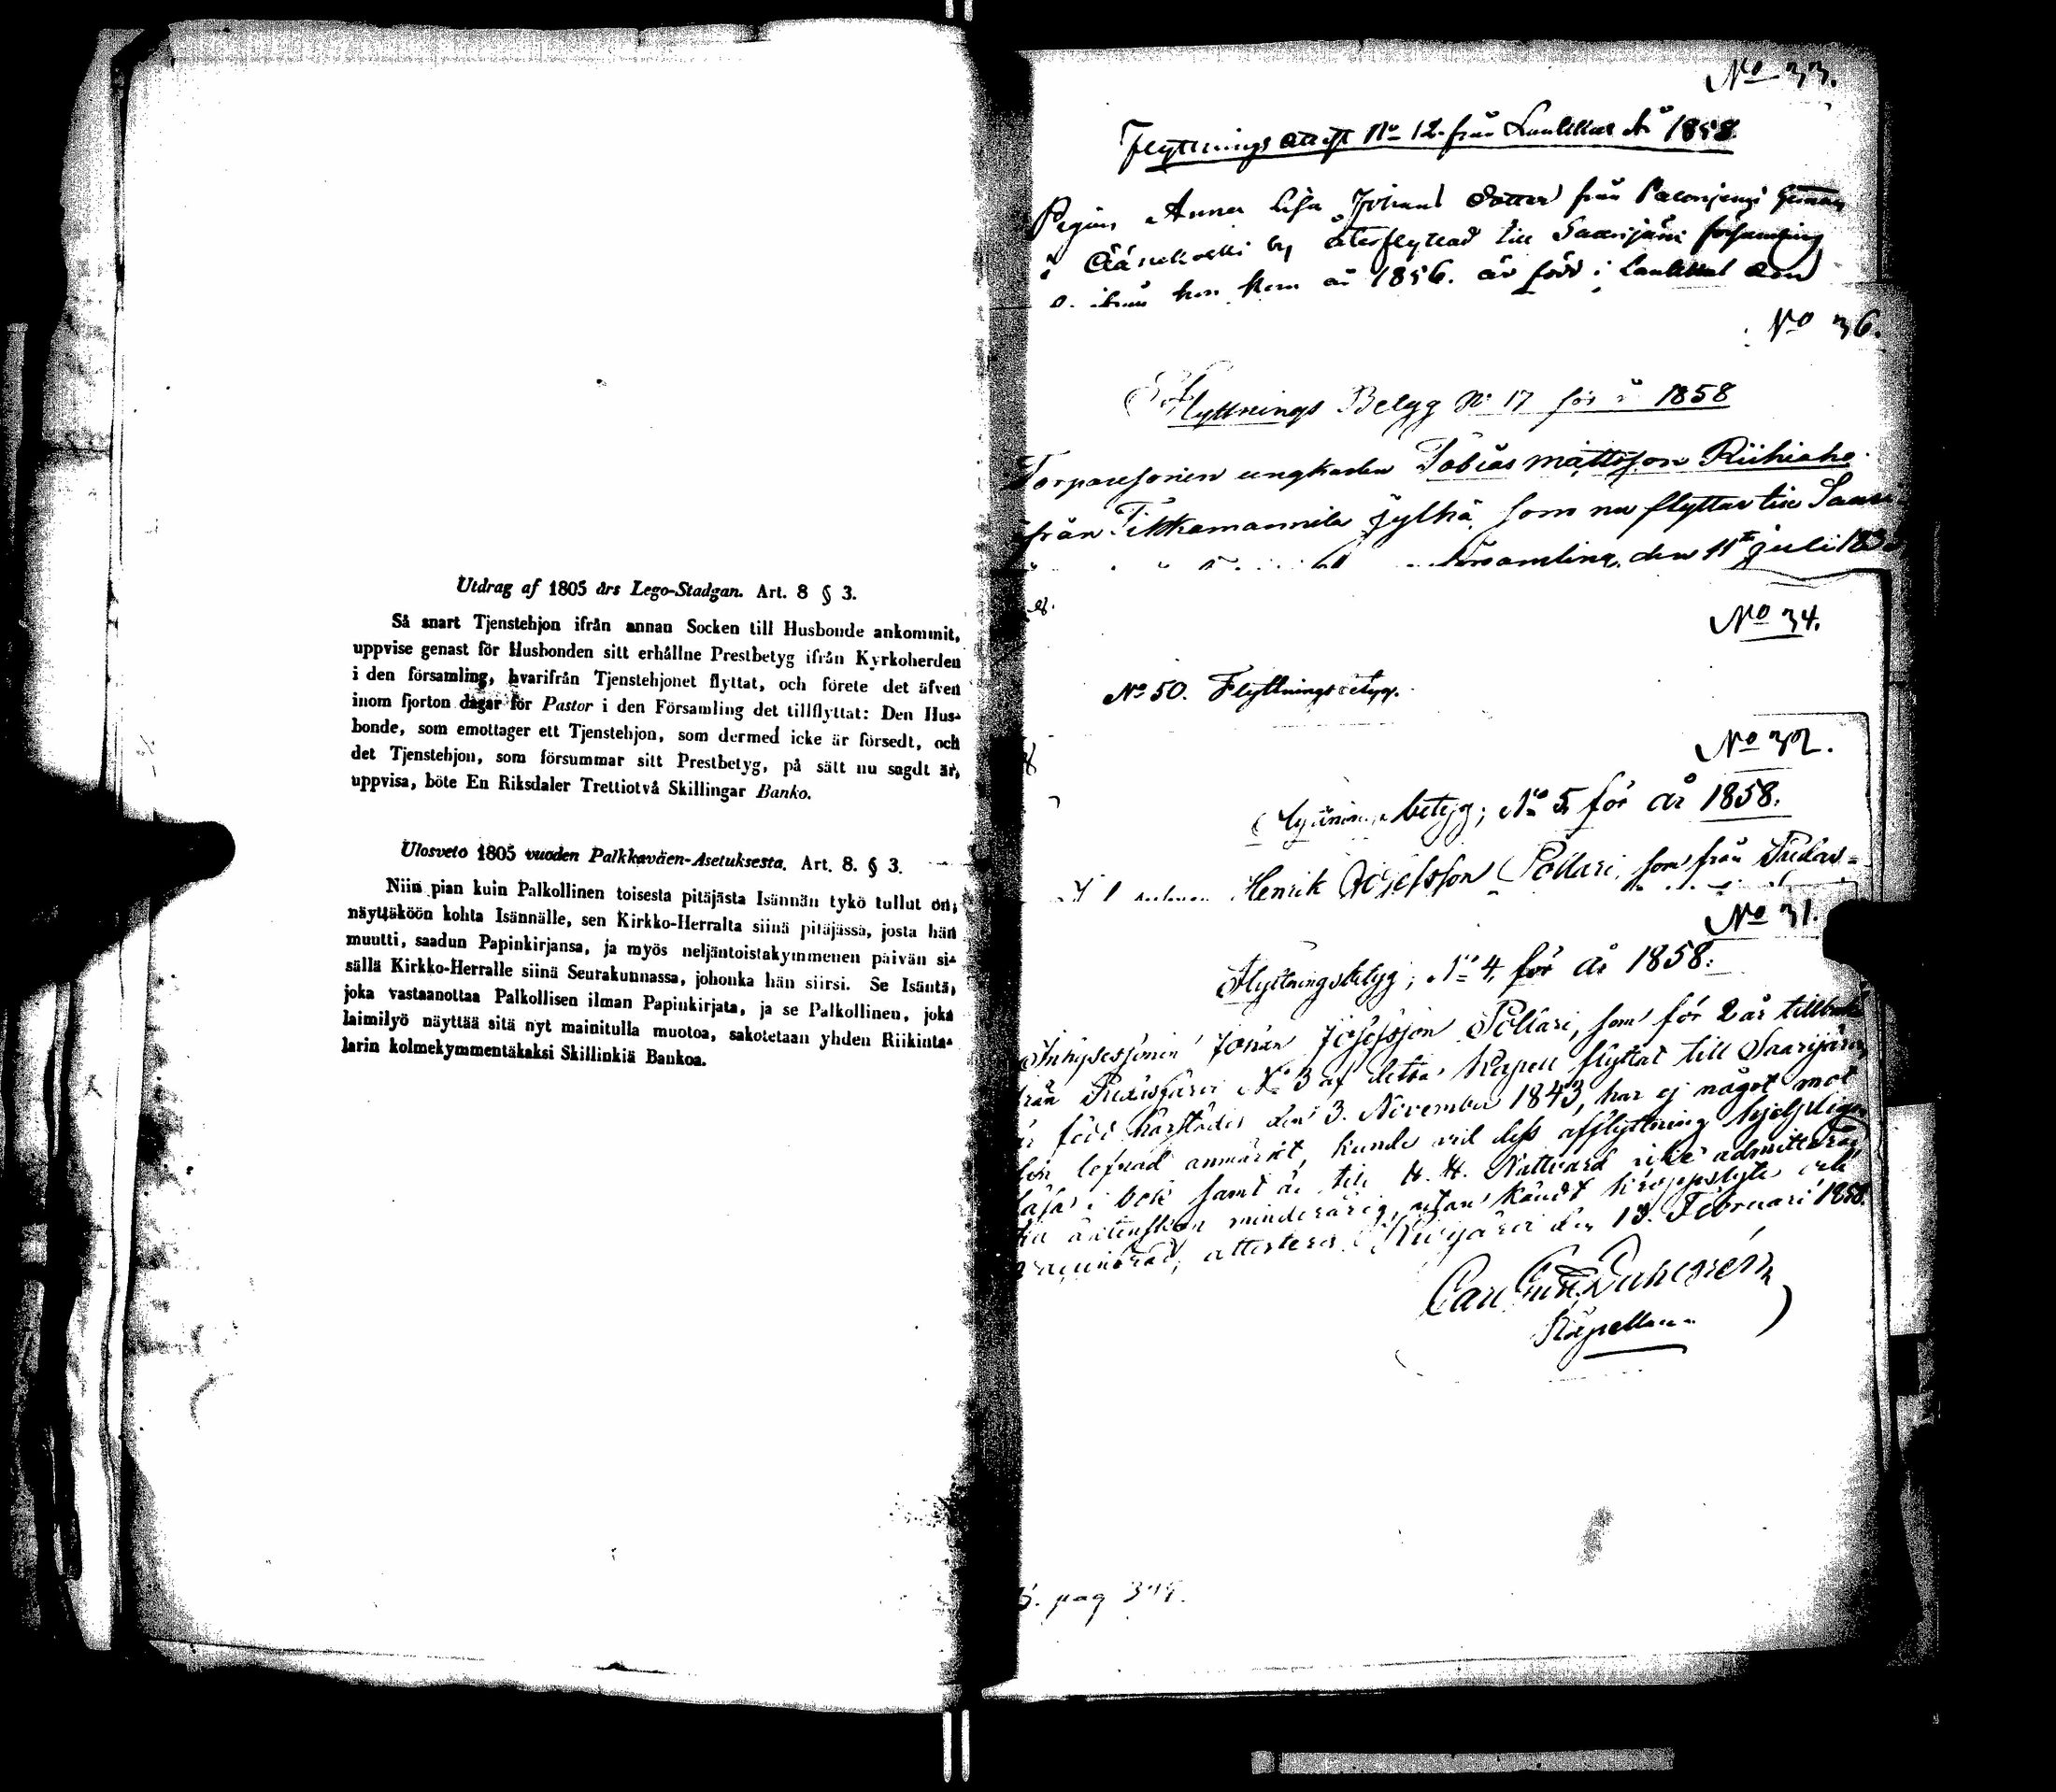 Utdrag af 1805 års Lego-Stadgan. Art. 8 § 3.
Så snart Tjenstehjon ifrån annan Socken till Husbonde ankommit,
uppvise genast för Husbonden sitt erhållne Prestbetyg ifrån Kyrkoherden
i den församling, hvarifrån Tjenstehjonet flyttat, och förete det äfven
inom fjorton dagar för Pastor i den Församling det tillflyttat: Den Hus-
bonde, som emottager ett Tjenstehjon, som dermed icke är försedt, och
det Tjenstehjon, som försummar sitt Prestbetyg, på sätt nu sagdt är,
uppvisa, böte En Riksdaler Trettiotvå Skillingar Banko.
Ulosveto 1805 vuoden Palkkaväen-Asetuksesta. Art. 8. § 3.
Niin pian kuin Palkollinen toisesta pitäjästa Isännän tykö tullut on,
näyttäköön kohta Isännälle, sen Kirkko-Herralta siinä pitäjässä, josta hän
muutti, saadun Papinkirjansa, ja myös neljäntoistakymmenen päivän si-
sällä Kirkko-Herralle siinä Seurakunnassa, johonka hän siirsi. Se Isäntä,
joka vastaanottaa Palkollisen ilman Papinkirjata, ja se Palkollinen, joka
laimilyö näyttää sitä nyt mainitulla muotoa, sakotetaan yhden Riikinta-
larin kolmekymmentäkaksi Skillinkiä Bankoa.
No 33.
Flyttnings attest No 12 från Laukkas År 1858
Pigan Anna Lisa Johans dotter från
i Äänekoski by återflyttad till Saarijärvi församling
hon kom år 1856. är född i Laukkas den
No 36.
Flyttnings Betyg No 17 för år 1858
Torparesonen ungkarlen Tobias Mattsson Riihiaho
från Tikkamannila Jylhä, som nu flyttar till
församling, den 11te Juli
No 34.
No 50. Flyttningsbetyg.
No 32.
betyg; No 5 för år 1858.
Henrik Josefsson Pollari, som från
No 31.
Flyttningsbetyg; No 4 för år 1858.
Inhysessonen Johan Josefsson Pollari, som för 2 år tillbaka
från No 3 af detta Kapell flyttat till Saarijärvi,
är född härstädes den 3. November 1843, har ej något mot
sin lefnad anmärkt, kunde vid dess afflyttning hjelpligen
läsa i bok samt är till H. H. Nattvard icke admitterad
minderårig, utan kändt kroppslyte och
vaccinerad, attesterar den 13. Februari 1858.
Carl
Kapellan
pag